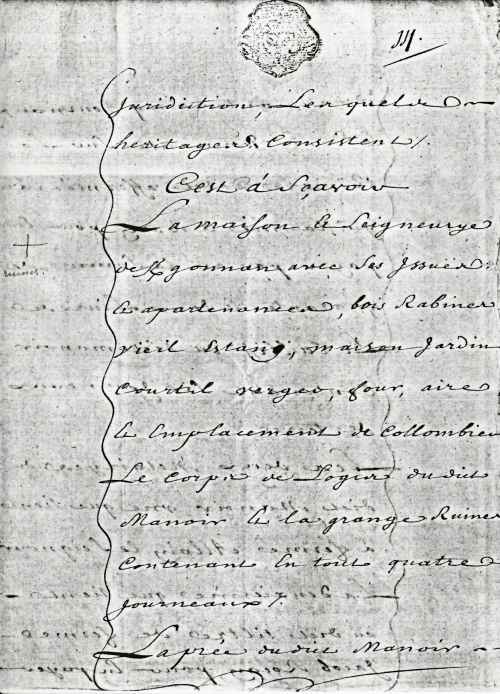 Juridiction, Lesquels
heritages Consistent /.
C'est à Sçavoir
La maison & Seigneurye
de Kgonnan avec Ses Issues
& apartenances, bois Rabines
vieil Estang, maison Jardin
Courtil verger, four, aire
& Emplacement de Collombier
Le Corps de Logis dudit
Manoir & la grange Ruines
Contenant En tout quatre
Journeaux /.
La prée dudit Manoir
ruines